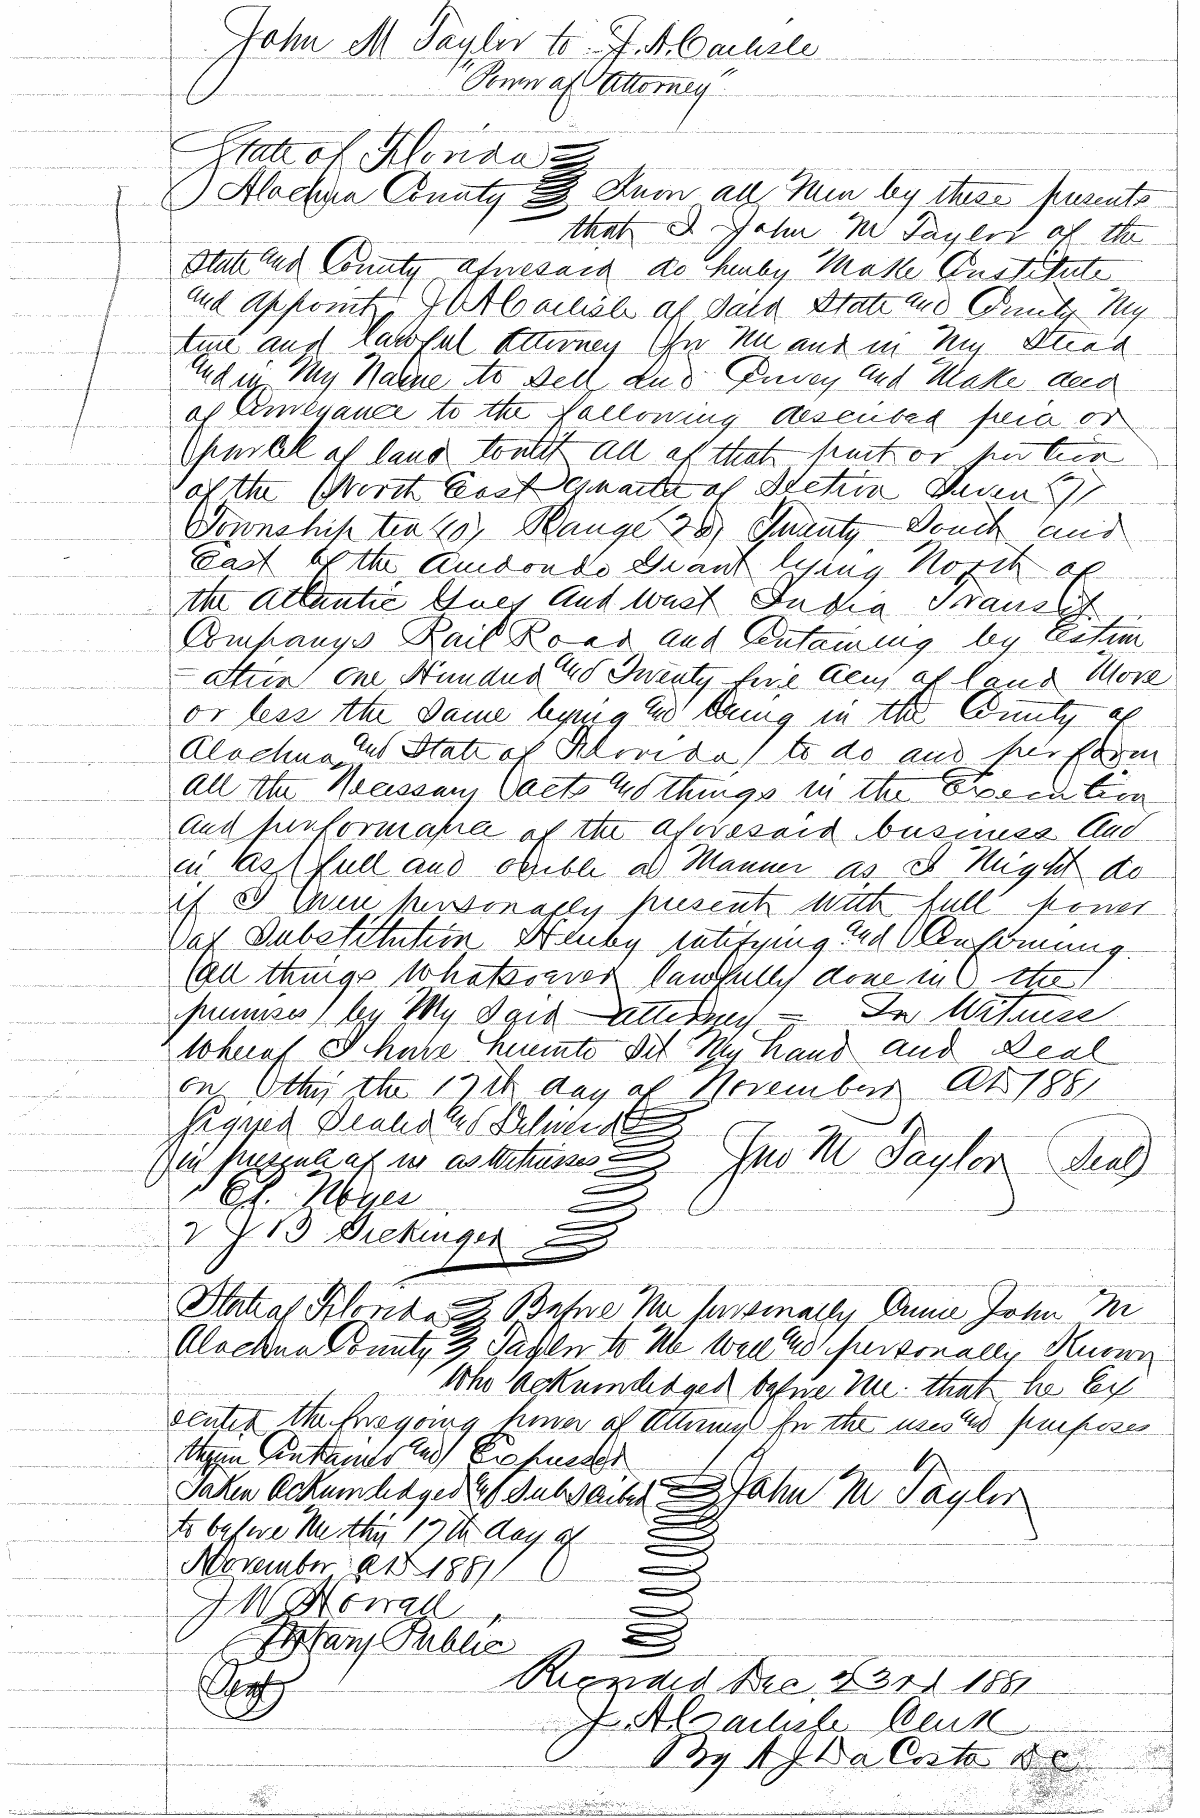 John M Taylor to J. A. Carlisle
"Power of Attorney"
State of Florida
Alachua County Know all Men by these presents
that I John M Taylor of the
State and County aforesaid do hereby Make Constitute
and appoint J A Carlisle of said State and County My
true and lawful Attorney for Me and in My Stead
and in My Name to Sell and Convey and Make deed
of Conveyance to the following described peice or
parcel of land towit all of that part or portion
of the North East quarter of Section Seven (7)
Township ten (10) Range (20) Twenty South and
East of the Arredondo Grant lying North of
the Atlantic Gulf and West India Transit
Companys Rail Road and Containing by Estim
-ation one Hundred and Twenty five acres of land More
or less the Same lying and being in the County of
Alachua and State of Florida to do and perform
all the Necessary acts and things in the Execution
and performance of the aforesaid business and
in as full and a Manner as I Might do
if I were personally present with full power
of Substitution Hereby ratifying and Confirming
all things whatsoever lawfully done in the
premises by My Said attorney = In Witness
whereof I have hereunto Set My hand and Seal
on this the 17th day of November AD 1881
Signed Sealed and Delivered
in presence of us as witnesses Jno M Taylor (Seal)
1 Noyes
2 J B
State of Florida Before Me personally Came John M
Alachua County Taylor to Me well and personally Known
Who acknowledged before Me that he Ex
ecuted the foregoing power of Attorney for the uses and purposes
therein Contained and Expressed
Taken acknowledged and Subscribed John M Taylor
to before Me this 17th day of
November AD 1881
J W Howall
Notary Public
(Seal) Recorded Dec. 23rd 1881
J. A. Carlisle Clerk
By A J Da Costa DC